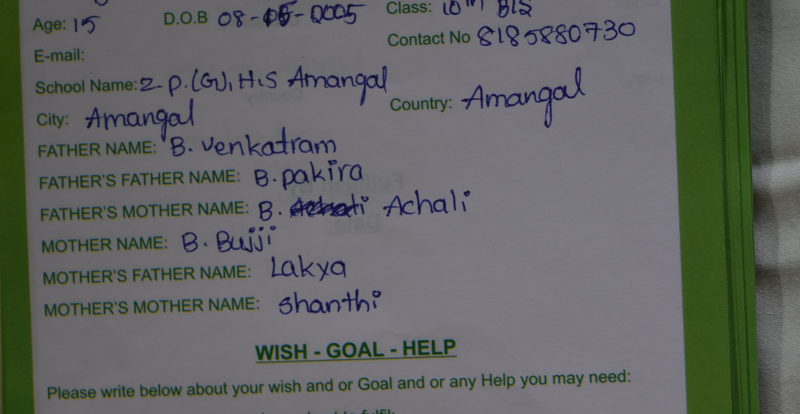 Age: 15 D.O.B 08-05-2005 Class: 10th
E-mail: Contact No 8185880730
School Name: Z.P.(G), H.S Amangal
City: Amangal Country: Amangal
FATHER NAME: B. Venkatram
FATHER'S FATHER NAME: B. pakira
FATHER'S MOTHER NAME: B. Achali
MOTHER NAME: B. Bujji
MOTHER'S FATHER NAME: Lakya
MOTHER'S MOTHER NAME: Shanthi
WISH - GOAL - HELP
Please write below about your wish and or Goal and or any Help you may need: